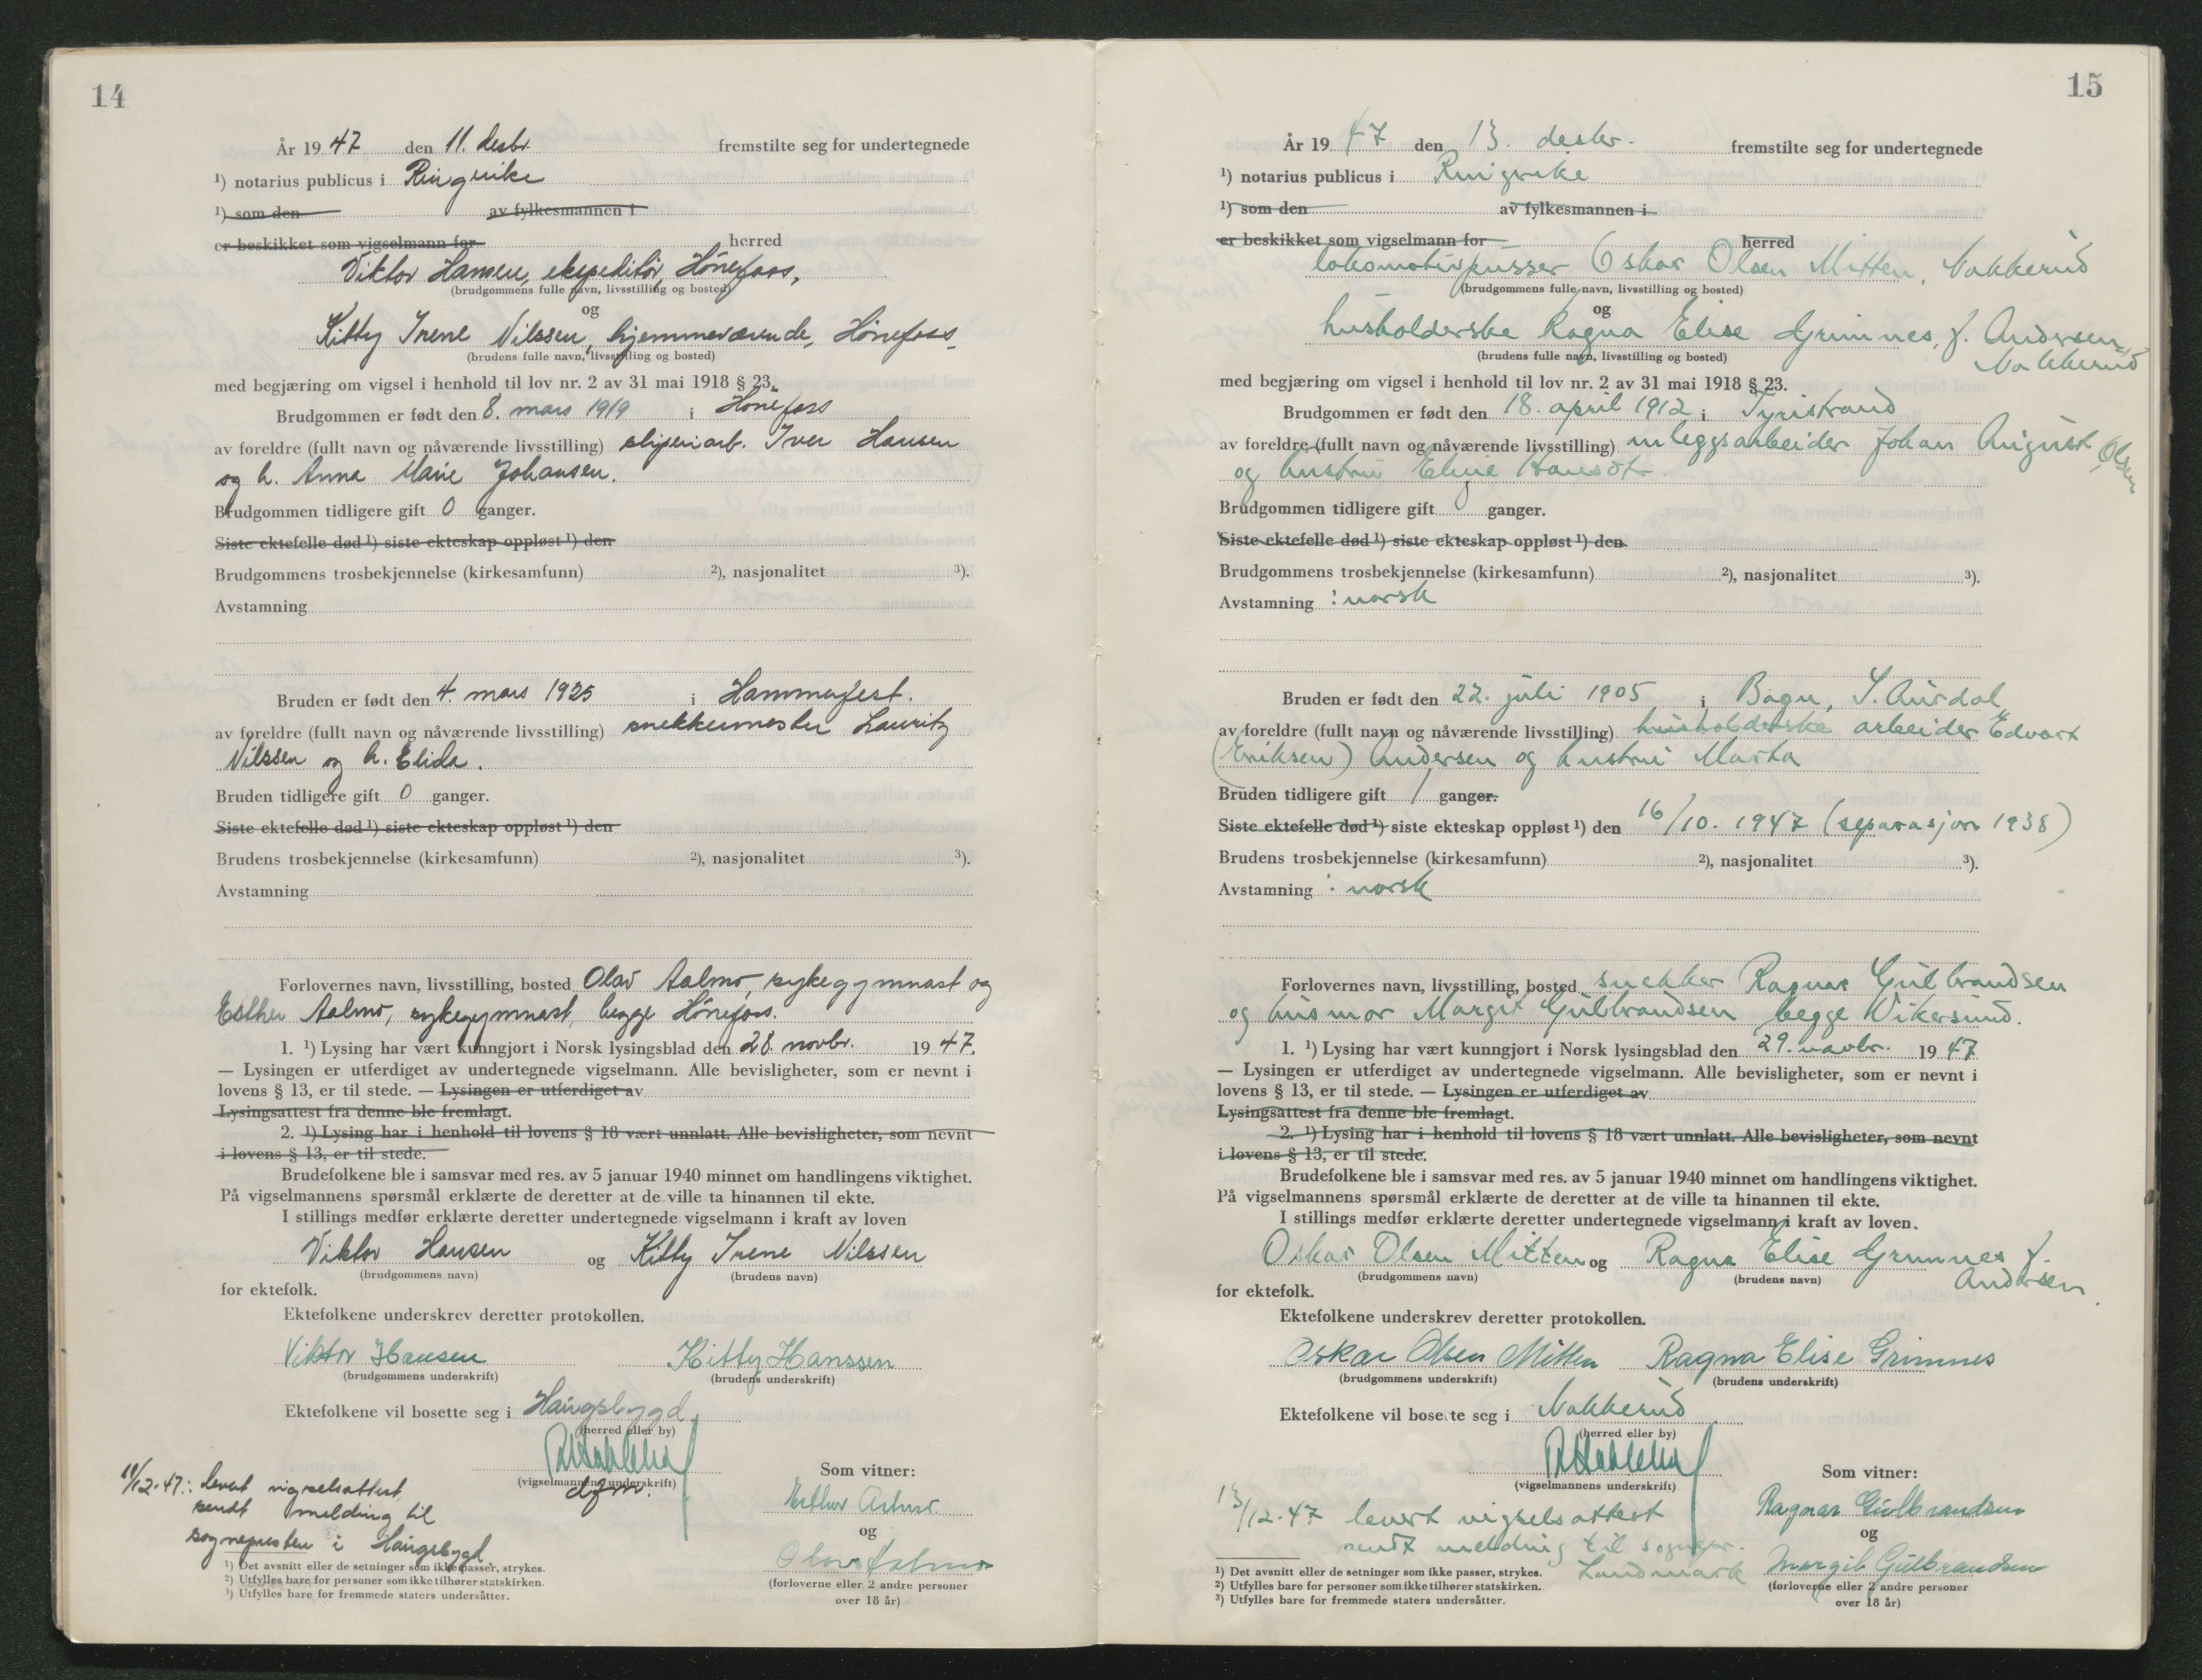 14
År 19 47 den 11. desbr. fremstilte seg for undertegnede
¹) notarius publicus i Ringerike
¹) som den av fylkesmannen i
er beskikket som vigselmann for herred
Viktor Hansen, ekspeditør, Hønefoss,
(brudgommens fulle navn, livsstilling og bosted)
og
Kitty Irene Nilssen, hjemmeværende, Hønefoss.
(brudens fulle navn, livsstilling og bosted)
med begjæring om vigsel i henhold til lov nr. 2 av 31 mai 1918 § 23.
Brudgommen er født den 8. mars 1919 i Hønefoss
av foreldre (fullt navn og nåværende livsstilling) sliperiarb. Iver Hansen
og h. Anna Marie Johansen.
Brudgommen tidligere gift 0 ganger.
Siste ektefelle død ¹) siste ekteskap oppløst ¹) den
Brudgommens trosbekjennelse (kirkesamfunn) ²), nasjonalitet ³).
Avstamning
Bruden er født den 4. mars 1925 i Hammerfest.
av foreldre (fullt navn og nåværende livsstilling) snekkermester Lauritz
Nilssen og h. Elida.
Bruden tidligere gift 0 ganger.
Siste ektefelle død ¹) siste ekteskap oppløst ¹) den
Brudens trosbekjennelse (kirkesamfunn) ²), nasjonalitet ³).
Avstamning
Forlovernes navn, livsstilling, bosted Olav Aalmo, sykegymnast og
Esther Aalmo, sykegymnast, begge Hønefoss.
1. ¹) Lysing har vært kunngjort i Norsk lysingsblad den 28. novbr. 19 47.
— Lysingen er utferdiget av undertegnede vigselmann. Alle bevisligheter, som er nevnt i
lovens § 13, er til stede. — Lysingen er utferdiget av
Lysingsattest fra denne ble fremlagt.
2. ¹) Lysing har i henhold til lovens § 18 vært unnlatt. Alle bevisligheter, som nevnt
i lovens § 13, er til stede.
Brudefolkene ble i samsvar med res. av 5 januar 1940 minnet om handlingens viktighet.
På vigselmannens spørsmål erklærte de deretter at de ville ta hinannen til ekte.
I stillings medfør erklærte deretter undertegnede vigselmann i kraft av loven
Viktor Hansen og Kitty Irene Nilssen
(brudgommens navn) (brudens navn)
for ektefolk.
Ektefolkene underskrev deretter protokollen.
Viktor Hansen Kitty Hanssen
(brudgommens underskrift) (brudens underskrift)
Ektefolkene vil bosette seg i Haugsbygd
(herred eller by)
(vigselmannens underskrift)
dfm.
11/12-47: levert vigselsattest,
sendt melding til
sognepresten i Haugsbygd
Som vitner:
Esther Aalmo
og
Olav Aalmo
(forloverne eller 2 andre personer
over 18 år)
¹) Det avsnitt eller de setninger som ikke passer, strykes.
²) Utfylles bare for personer som ikke tilhører statskirken.
³) Utfylles bare for fremmede staters undersåtter.
15
År 19 47 den 13. desbr. fremstilte seg for undertegnede
¹) notarius publicus i Ringerike
¹) som den av fylkesmannen i
er beskikket som vigselmann for herred
lokomotivpusser Oskar Olsen Mitten, Nakkerud
(brudgommens fulle navn, livsstilling og bosted)
og
husholderske Ragna Elise Grimnes, f. Andersen,
Nakkerud
(brudens fulle navn, livsstilling og bosted)
med begjæring om vigsel i henhold til lov nr. 2 av 31 mai 1918 § 23.
Brudgommen er født den 18. april 1912 i Tyristrand
av foreldre (fullt navn og nåværende livsstilling) anleggsarbeider Johan August Olsen
og hustru Eline Hansdtr.
Brudgommen tidligere gift 0 ganger.
Siste ektefelle død ¹) siste ekteskap oppløst ¹) den
Brudgommens trosbekjennelse (kirkesamfunn) ²), nasjonalitet ³).
Avstamning : norsk
Bruden er født den 22. juli 1905 i Bagn, S. Aurdal
av foreldre (fullt navn og nåværende livsstilling) husholderske arbeider Edvart
(Eriksen) Andersen og hustru Marta
Bruden tidligere gift 1 ganger.
Siste ektefelle død ¹) siste ekteskap oppløst ¹) den 16/10. 1947 (separasjon 1938)
Brudens trosbekjennelse (kirkesamfunn) ²), nasjonalitet ³).
Avstamning : norsk
Forlovernes navn, livsstilling, bosted snekker Ragnar Gulbrandsen
og husmor Margit Gulbrandsen begge Vikersund.
1. ¹) Lysing har vært kunngjort i Norsk lysingsblad den 29. novbr. 19 47
— Lysingen er utferdiget av undertegnede vigselmann. Alle bevisligheter, som er nevnt i
lovens § 13, er til stede. — Lysingen er utferdiget av
Lysingsattest fra denne ble fremlagt.
2. ¹) Lysing har i henhold til lovens § 18 vært unnlatt. Alle bevisligheter, som nevnt
i lovens § 13, er til stede.
Brudefolkene ble i samsvar med res. av 5 januar 1940 minnet om handlingens viktighet.
På vigselmannens spørsmål erklærte de deretter at de ville ta hinannen til ekte.
I stillings medfør erklærte deretter undertegnede vigselmann i kraft av loven.
Oskar Olsen Mitten og Ragna Elise Grimnes f.
Andersen
(brudgommens navn) (brudens navn)
for ektefolk.
Ektefolkene underskrev deretter protokollen.
Oskar Olsen Mitten Ragna Elise Grimnes
(brudgommens underskrift) (brudens underskrift)
Ektefolkene vil bosette seg i Nakkerud
(herred eller by)
(vigselmannens underskrift)
13/12-47 levert vigselsattest
sendt melding til sognepr.
Landmark
Som vitner:
Ragnar Gulbrandsen
og
Margit Gulbrandsen
(forloverne eller 2 andre personer
over 18 år)
¹) Det avsnitt eller de setninger som ikke passer, strykes.
²) Utfylles bare for personer som ikke tilhører statskirken.
³) Utfylles bare for fremmede staters undersåtter.